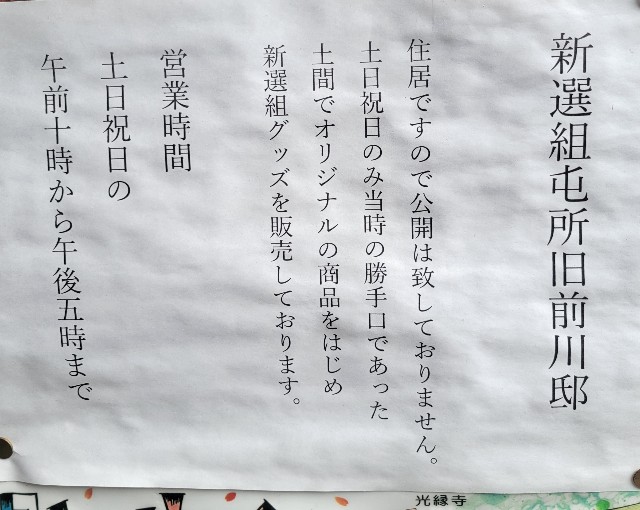 新選組屯所旧前川邸
住居ですので公開は致しておりません。
土日祝日のみ当時の勝手口であった
土間でオリジナルの商品をはじめ
新選組グッズを販売しております。
営業時間
土日祝日の
午前十時から午後五時まで
光縁寺